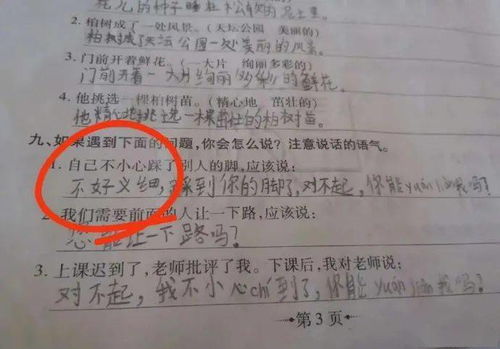 2. 柏树成了一处风景。(天坛公园 美丽的)
柏树成了天坛公园一处美丽的风景。
3. 门前开着鲜花。(一大片 绚丽多彩的)
门前开着一大片绚丽多彩的鲜花。
4. 他挑选一棵柏树苗。(精心地 茁壮的)
他精心地挑选一棵茁壮的柏树苗。
九、如果遇到下面的问题,你会怎么说?注意说话的语气。
1. 自己不小心踩了别人的脚,应该说:
不好义思,踩到你的脚了,对不起,你能yuán liàng我吗?
2. 我们需要前面的人让一下路,应该说:
您能让一下路吗?
3. 上课迟到了,老师批评了我。下课后,我对老师说:
对不起,我不小心chí到了,你能yuán liàng我吗?
第3页